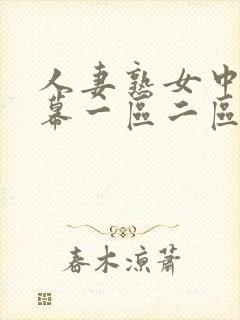 人妻熟女中
幕一區二區
春木凉蕭